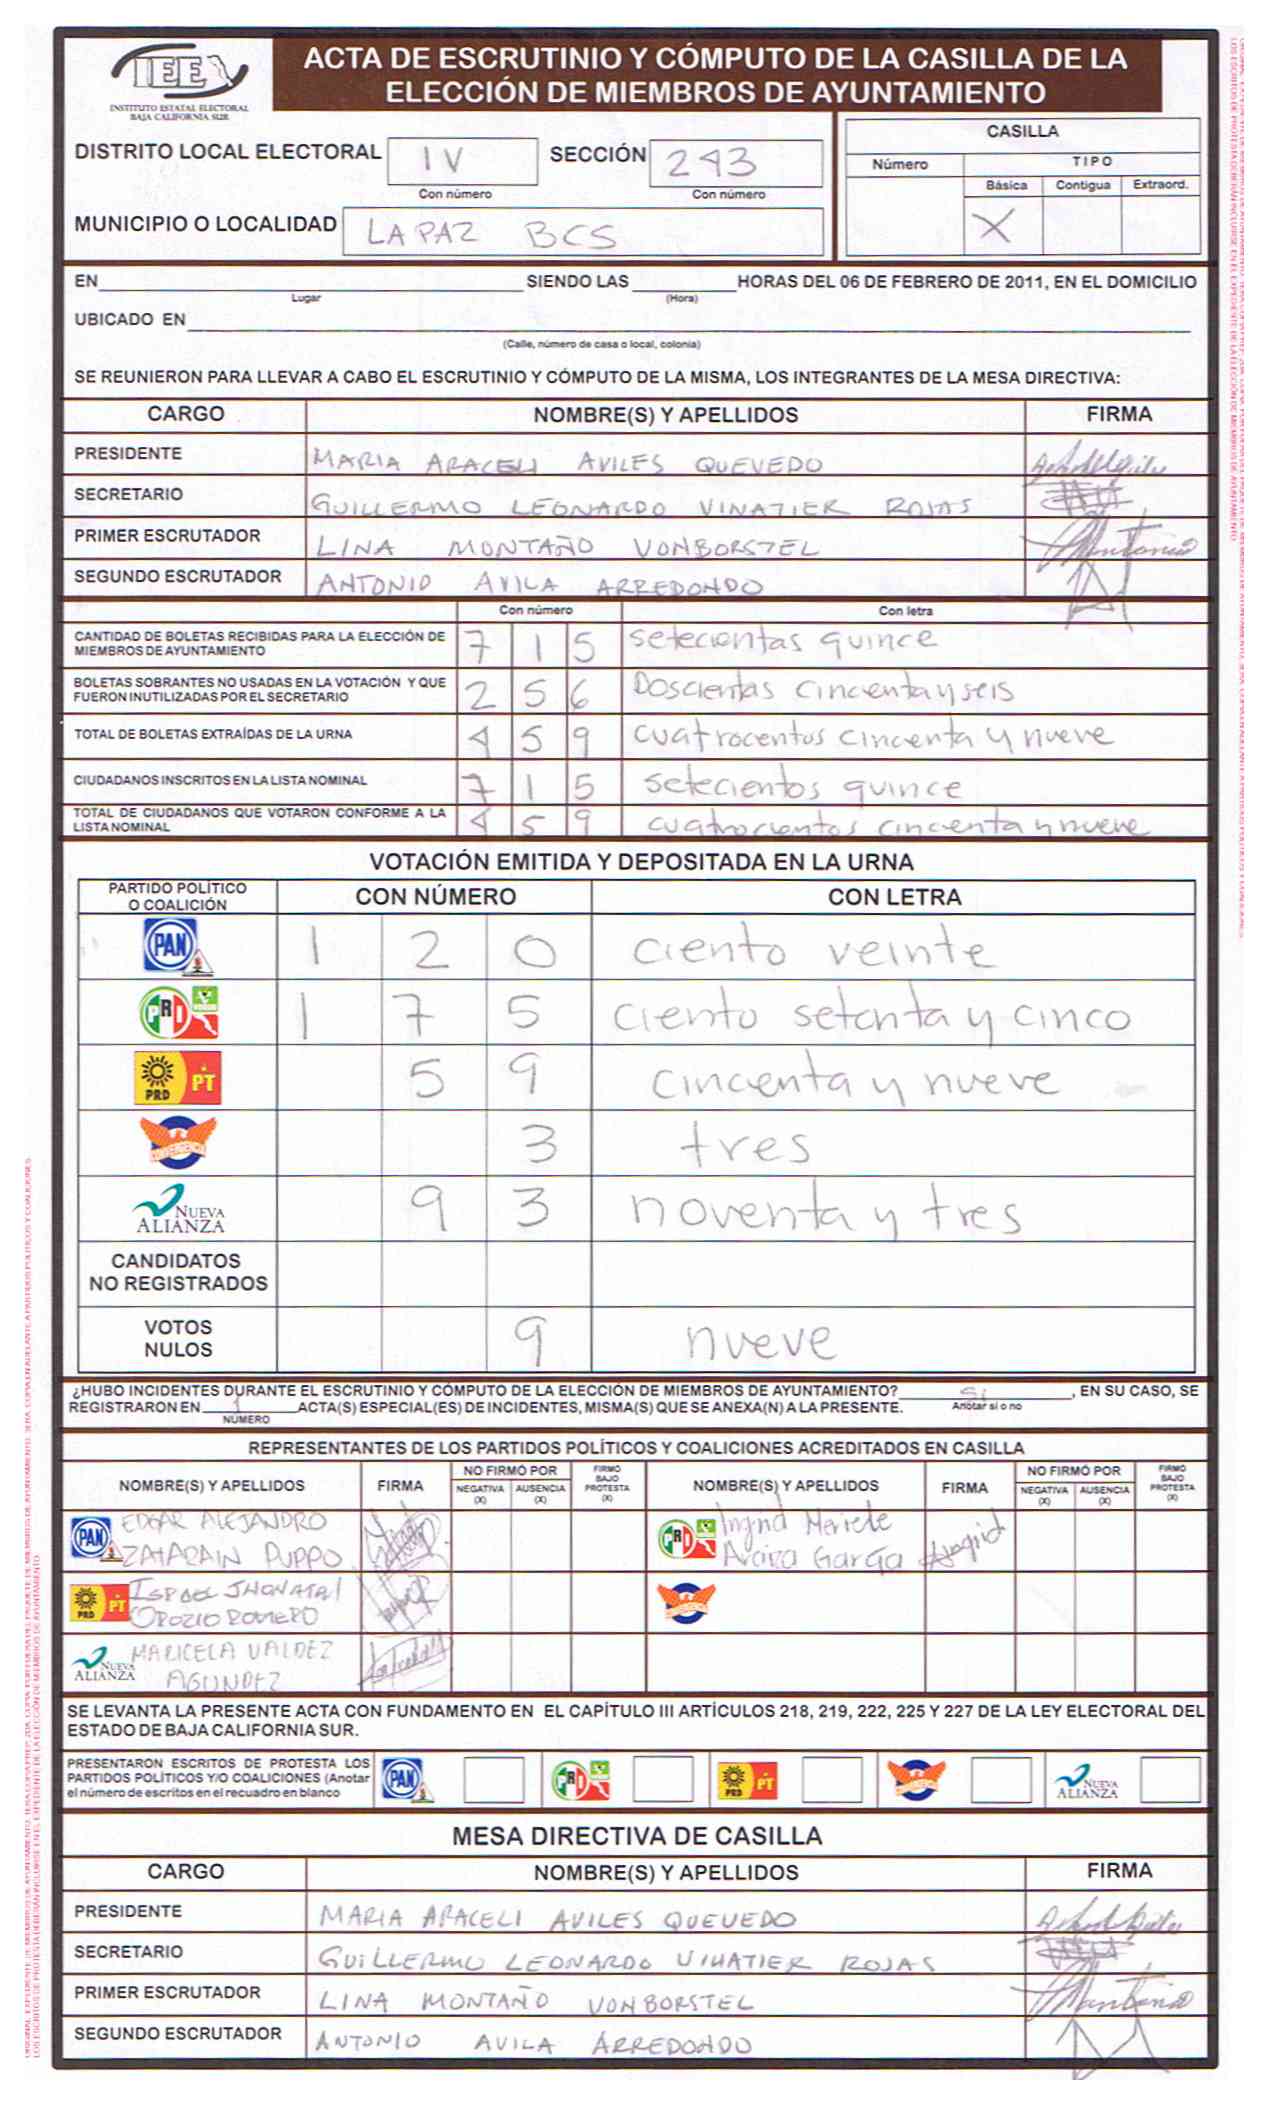 IEE
INSTITUTO ESTATAL ELECTORAL
BAJA CALIFORNIA SUR
ACTA DE ESCRUTINIO Y CÓMPUTO DE LA CASILLA DE LA
ELECCIÓN DE MIEMBROS DE AYUNTAMIENTO
DISTRITO LOCAL ELECTORAL IV SECCIÓN 293
Con número Con número
MUNICIPIO O LOCALIDAD LA PAZ BCS
CASILLA
Número TIPO
Básica Contigua Extraord.
X
EN SIENDO LAS HORAS DEL 06 DE FEBRERO DE 2011, EN EL DOMICILIO
Lugar (Hora)
UBICADO EN
(Calle, número de casa o local, colonia)
SE REUNIERON PARA LLEVAR A CABO EL ESCRUTINIO Y CÓMPUTO DE LA MISMA, LOS INTEGRANTES DE LA MESA DIRECTIVA:
CARGO NOMBRE(S) Y APELLIDOS FIRMA
PRESIDENTE MARIA ARACELI AVILES QUEVEDO
SECRETARIO GUILLERMO LEONARDO VINATIER ROJAS
PRIMER ESCRUTADOR LINA MONTAÑO VONBORSTEL
SEGUNDO ESCRUTADOR ANTONIO AVILA ARREDONDO
Con número Con letra
CANTIDAD DE BOLETAS RECIBIDAS PARA LA ELECCIÓN DE
MIEMBROS DE AYUNTAMIENTO 7 1 5 setecientas quince
BOLETAS SOBRANTES NO USADAS EN LA VOTACIÓN Y QUE
FUERON INUTILIZADAS POR EL SECRETARIO 2 5 6 Doscientas cincenta y seis
TOTAL DE BOLETAS EXTRAÍDAS DE LA URNA 4 5 9 cuatrocentos cincenta y nueve
CIUDADANOS INSCRITOS EN LA LISTA NOMINAL 7 1 5 setecientos quince
TOTAL DE CIUDADANOS QUE VOTARON CONFORME A LA
LISTA NOMINAL 4 5 9 cuatrocientos cincenta y nueve
VOTACIÓN EMITIDA Y DEPOSITADA EN LA URNA
PARTIDO POLÍTICO
O COALICIÓN CON NÚMERO CON LETRA
PAN 1 2 0 ciento veinte
PRI VERDE 1 7 5 ciento setenta y cinco
PRD PT 5 9 cincenta y nueve
CONVERGENCIA 3 tres
NUEVA ALIANZA 9 3 noventa y tres
CANDIDATOS
NO REGISTRADOS
VOTOS
NULOS 9 nueve
¿HUBO INCIDENTES DURANTE EL ESCRUTINIO Y CÓMPUTO DE LA ELECCIÓN DE MIEMBROS DE AYUNTAMIENTO? si, EN SU CASO, SE
REGISTRARON EN 1 ACTA(S) ESPECIAL(ES) DE INCIDENTES, MISMA(S) QUE SE ANEXA(N) A LA PRESENTE. Anotar si o no
NÚMERO
REPRESENTANTES DE LOS PARTIDOS POLÍTICOS Y COALICIONES ACREDITADOS EN CASILLA
NOMBRE(S) Y APELLIDOS FIRMA NO FIRMÓ POR NEGATIVA (X) AUSENCIA (X) FIRMÓ BAJO PROTESTA (X) NOMBRE(S) Y APELLIDOS FIRMA NO FIRMÓ POR NEGATIVA (X) AUSENCIA (X) FIRMÓ BAJO PROTESTA (X)
PAN EDGAR ALEJANDRO
ZATARAIN PUPPO
PRI Ingrid
García
PRD PT JHONATAN
OROZCO ROMERO
CONVERGENCIA
NUEVA ALIANZA MARICELA VALDEZ
AGUNDEZ
SE LEVANTA LA PRESENTE ACTA CON FUNDAMENTO EN EL CAPÍTULO III ARTÍCULOS 218, 219, 222, 225 Y 227 DE LA LEY ELECTORAL DEL
ESTADO DE BAJA CALIFORNIA SUR.
PRESENTARON ESCRITOS DE PROTESTA LOS
PARTIDOS POLÍTICOS Y/O COALICIONES (Anotar
el número de escritos en el recuadro en blanco
PAN PRI PRD PT CONVERGENCIA NUEVA ALIANZA
MESA DIRECTIVA DE CASILLA
CARGO NOMBRE(S) Y APELLIDOS FIRMA
PRESIDENTE MARIA ARACELI AVILES QUEVEDO
SECRETARIO GUILLERMO LEONARDO VINATIER ROJAS
PRIMER ESCRUTADOR LINA MONTAÑO VONBORSTEL
SEGUNDO ESCRUTADOR ANTONIO AVILA ARREDONDO